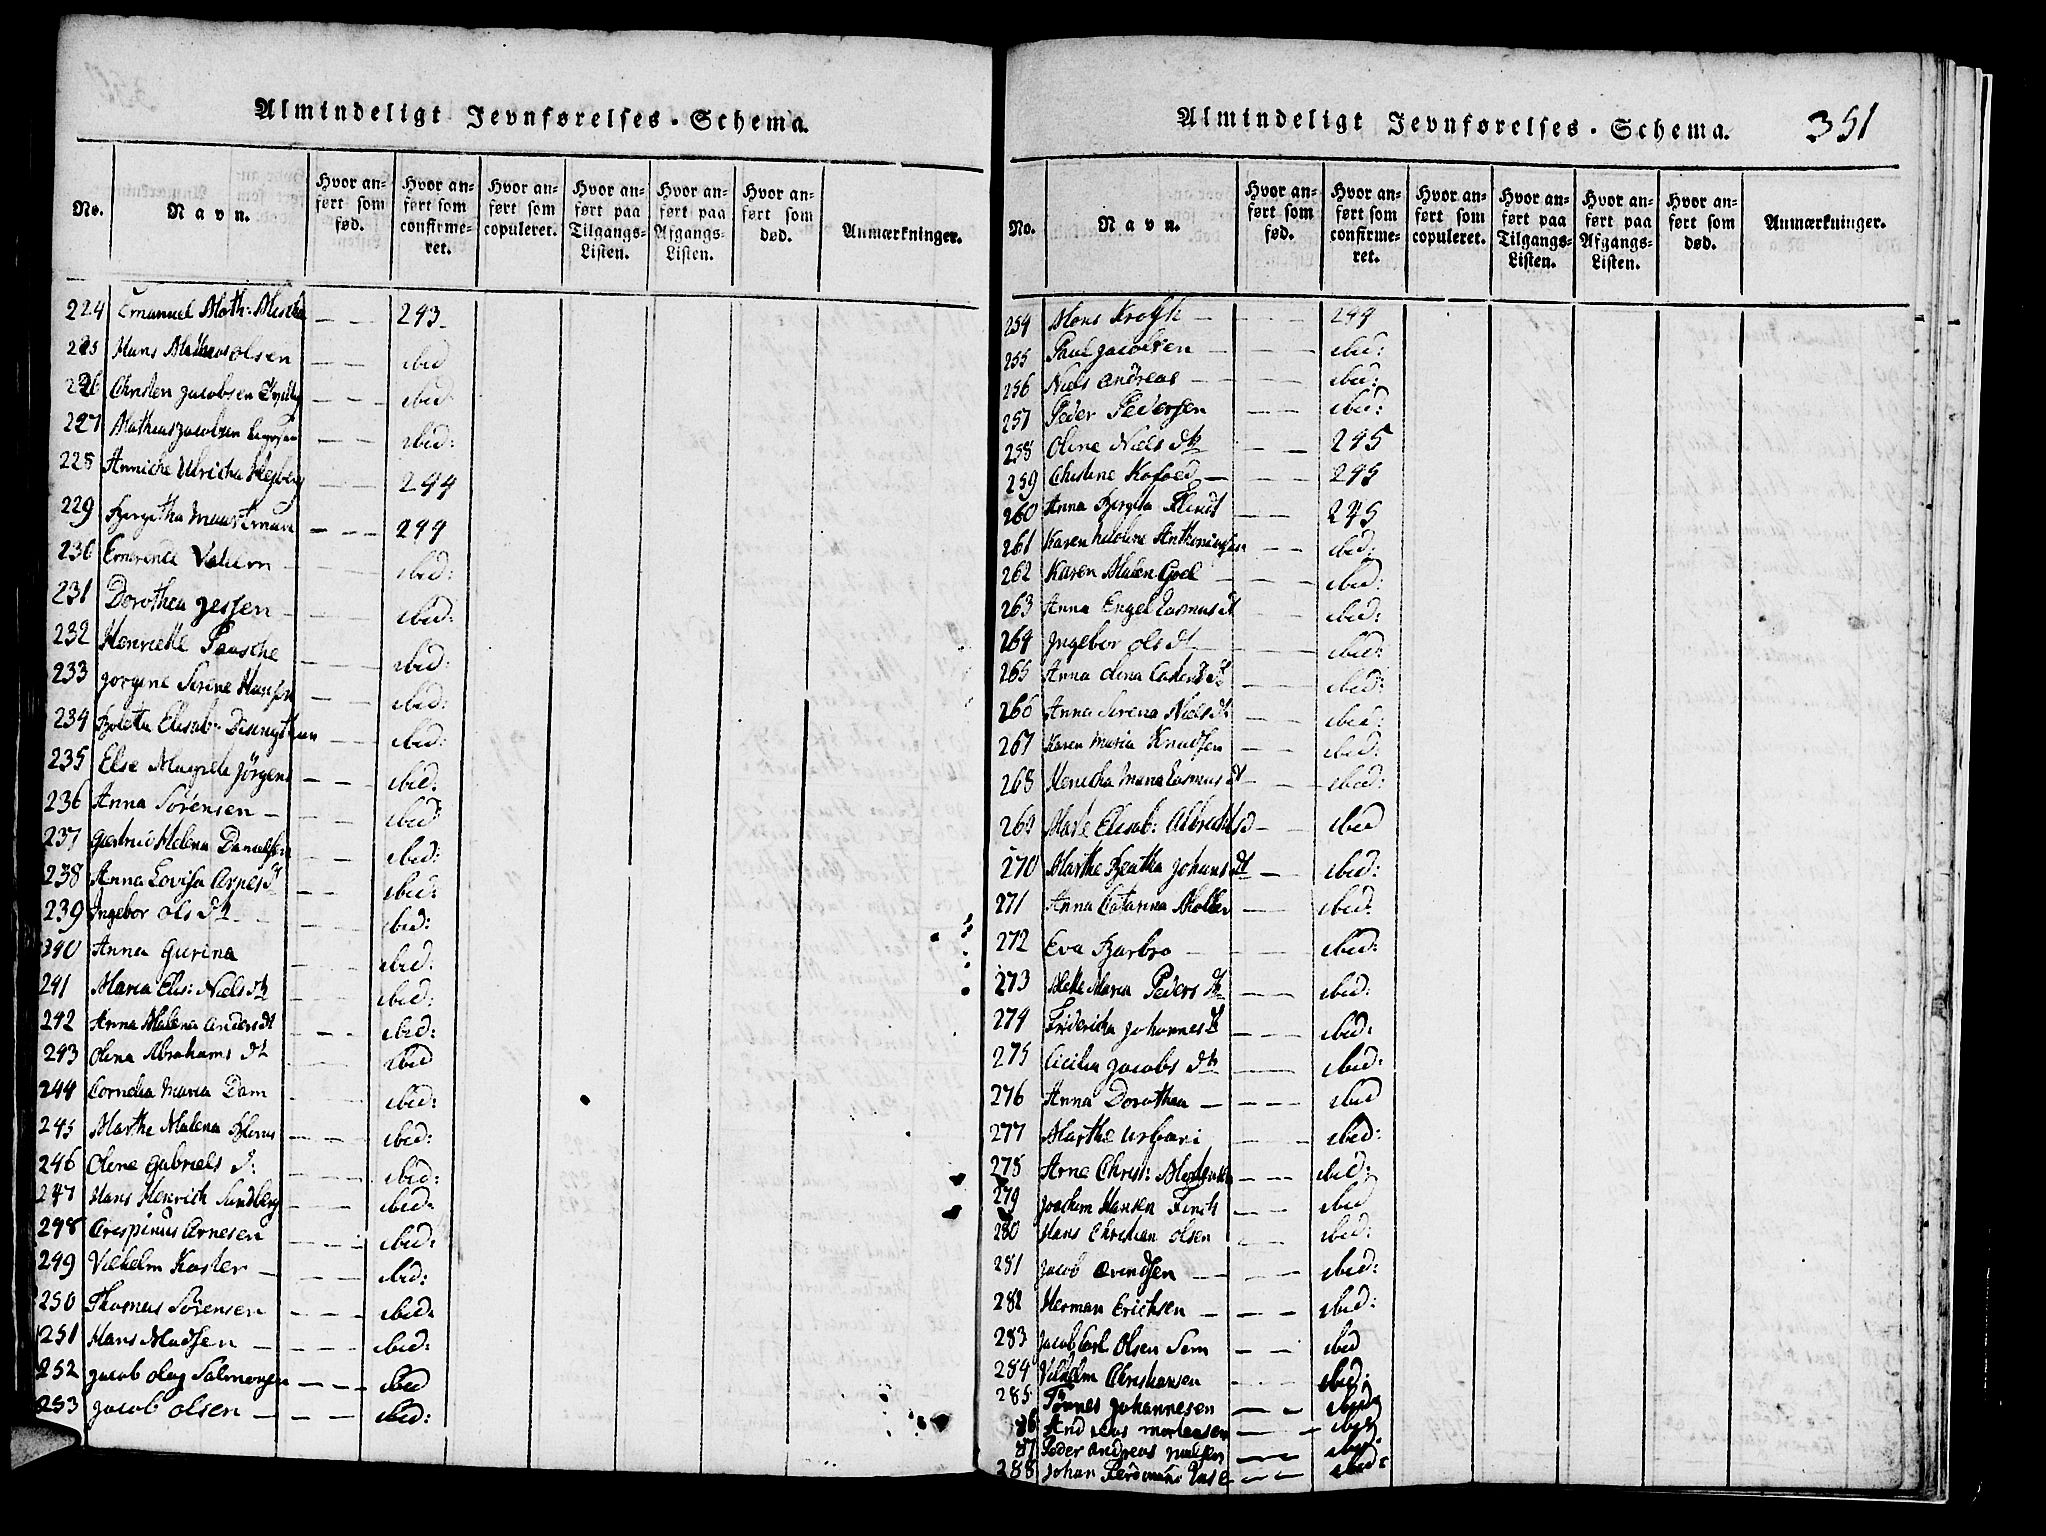 Almindeligt Jevnførelses-Schema.
No. Navn. Hvor anført som fød. Hvor anført som confirmeret. Hvor anført som copuleret. Hvor anført paa Tilgangs-Listen. Hvor anført paa Afgangs-Listen. Hvor anført som død. Anmærkninger.
224 Emanuel Math: — — 243
225 Hans Mathias olsen ibid
226 Christen Jacobsen — — ibid:
227 Mathias Jacobsen — — ibid:
228 Anniche Ulricha — — 244
229 — — — 244
230 — — ibid:
231 Dorothea Jessen — — — ibid:
232 Henriette Paasche — — ibid:
233 Jorgine Serine Hansen — — ibid:
234 Elisab: — — ibid:
235 Else Magrete Jörgens — — ibid:
236 Anna Sörensen — — — ibid
237 Gertrud Helena Danielsen — — ibid:
238 Anna Lovisa Arnes dt — — ibid:
239 Ingebor ols dt — ibid:
240 Anna Gurina — — ibid:
241 Maria Elis: Niels dt — — ibid:
242 Anna Malena anders dt — — ibid:
243 Olena Abrahams dt — — ibid
244 Cornelia Maria Dam — — ibid:
245 Marthe Malena — — ibid:
246 Olene Gabriels d: — — ibid:
247 Hans Henrich Sundberg — — ibid:
248 Crispinus Arnesen — — ibid:
249 Vilhelm Koster — — — ibid:
250 Thomas Sörensen — — — ibid:
251 Hans Madsen — — — ibid:
252 Jacob olag Salmonsen — — ibid
253 Jacob olsen — — — ibid:
Almindeligt Jevnførelses-Schema. 351
No. Navn. Hvor anført som fød. Hvor anført som confirmeret. Hvor anført som copuleret. Hvor anført paa Tilgangs-Listen. Hvor anført paa Afgangs-Listen. Hvor anført som død. Anmærkninger.
254 Mons Krogh — — — 244
255 Paul Jacobsen — — — ibid:
256 Niels Andreas — — — ibid:
257 Peder Pedersen ibid:
258 Olene Niels dt — — 245
259 Christine Kofoed — — — 245
260 Anna — — 245
261 Karen — — ibid:
262 Karen Malen — — — ibid:
263 Anna Engel Rasmus dt ibid:
264 Ingebor ols dt — — ibid:
265 Anna Olena — — ibid:
266 Anna Serena Niels dt — — ibid:
267 Karen Maria Knudsen — — ibid:
268 Maria Rasmus dt — — ibid:
269 Marte Elisab: Albrechts d — — ibid
270 Marthe Johans dt — ibid:
271 Anna Catarina Moller — — ibid:
272 Eva Barbro — — — ibid:
273 Mette Maria Peders dt — — ibid:
274 Fridericha Johannes dt — — ibid:
275 Cicilia Jacobs dt — — ibid:
276 Anna Dorothea — — — ibid
277 Marthe — — ibid:
278 Arne Christ: — — ibid:
279 Joachim Hansen Finch — — ibid
280 Hans Christian Olsen — — ibid:
281 Jacob — — — ibid:
282 Herman Erichsen — — — ibid:
283 Jacob Carl Olsen Sem — — ibid
284 Vilhelm Christiansen — — ibid:
285 Tönnes Johannesen — — ibid
86 Andreas Mortensen — — ibid
87 Peder Andreas — — ibid:
288 Johan Ferdinand — — ibid: